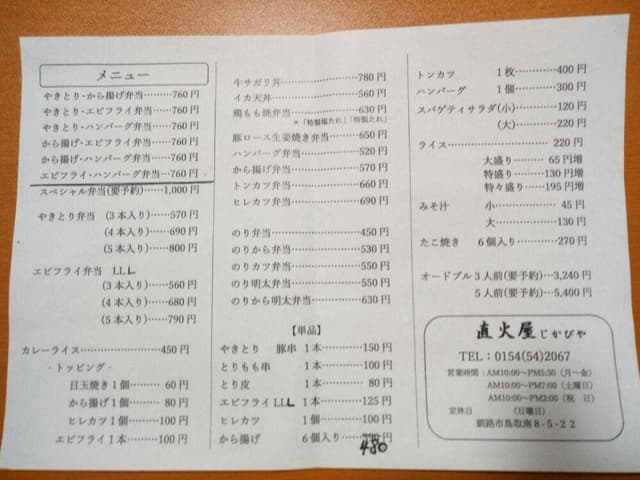 メニュー
やきとり・から揚げ弁当……760円
やきとり・エビフライ弁当……760円
やきとり・ハンバーグ弁当……760円
から揚げ・エビフライ弁当……760円
から揚げ・ハンバーグ弁当……760円
エビフライ・ハンバーグ弁当…760円
スペシャル弁当(要予約)……1,000円
やきとり弁当 (3本入り)……570円
(4本入り)……690円
(5本入り)……800円
エビフライ弁当 LLL
(3本入り)……560円
(4本入り)……680円
(5本入り)……790円
カレーライス……………………450円
・トッピング・
目玉焼き1個……… 60円
から揚げ1個……… 80円
ヒレカツ1個………100円
エビフライ1本……100円
牛サガリ丼……………………780円
イカ天丼………………………560円
鶏もも焼弁当…………………630円
*「特製塩たれ」「特製たれ」
豚ロース生姜焼き弁当………650円
ハンバーグ弁当………………520円
から揚げ弁当…………………570円
トンカツ弁当…………………660円
ヒレカツ弁当…………………690円
のり弁当………………………450円
のりから弁当…………………530円
のりカツ弁当…………………550円
のり明太弁当…………………550円
のりから明太弁当……………630円
【単品】
やきとり 豚串 1本…………150円
とりもも串 1本…………100円
とり皮 1本………… 80円
エビフライLLL 1本…………125円
ヒレカツ 1個…………100円
から揚げ 6個入り………円
480
トンカツ 1枚…………400円
ハンバーグ 1個…………300円
スパゲティサラダ(小)…………120円
(大)…………220円
ライス……………………………220円
大盛り…… 65円増
特盛り……130円増
特々盛り……195円増
みそ汁 小…………… 45円
大……………130円
たこ焼き 6個入り…………270円
オードブル3人前(要予約)…3,240円
5人前(要予約)…5,400円
直火屋じかびや
TEL:0154(54)2067
営業時間:AM10:00~PM5:30(月~金)
AM10:00~PM7:00(土曜日)
AM10:00~PM2:00(祝 日)
定休日 (日曜日)
釧路市鳥取南8-5-22